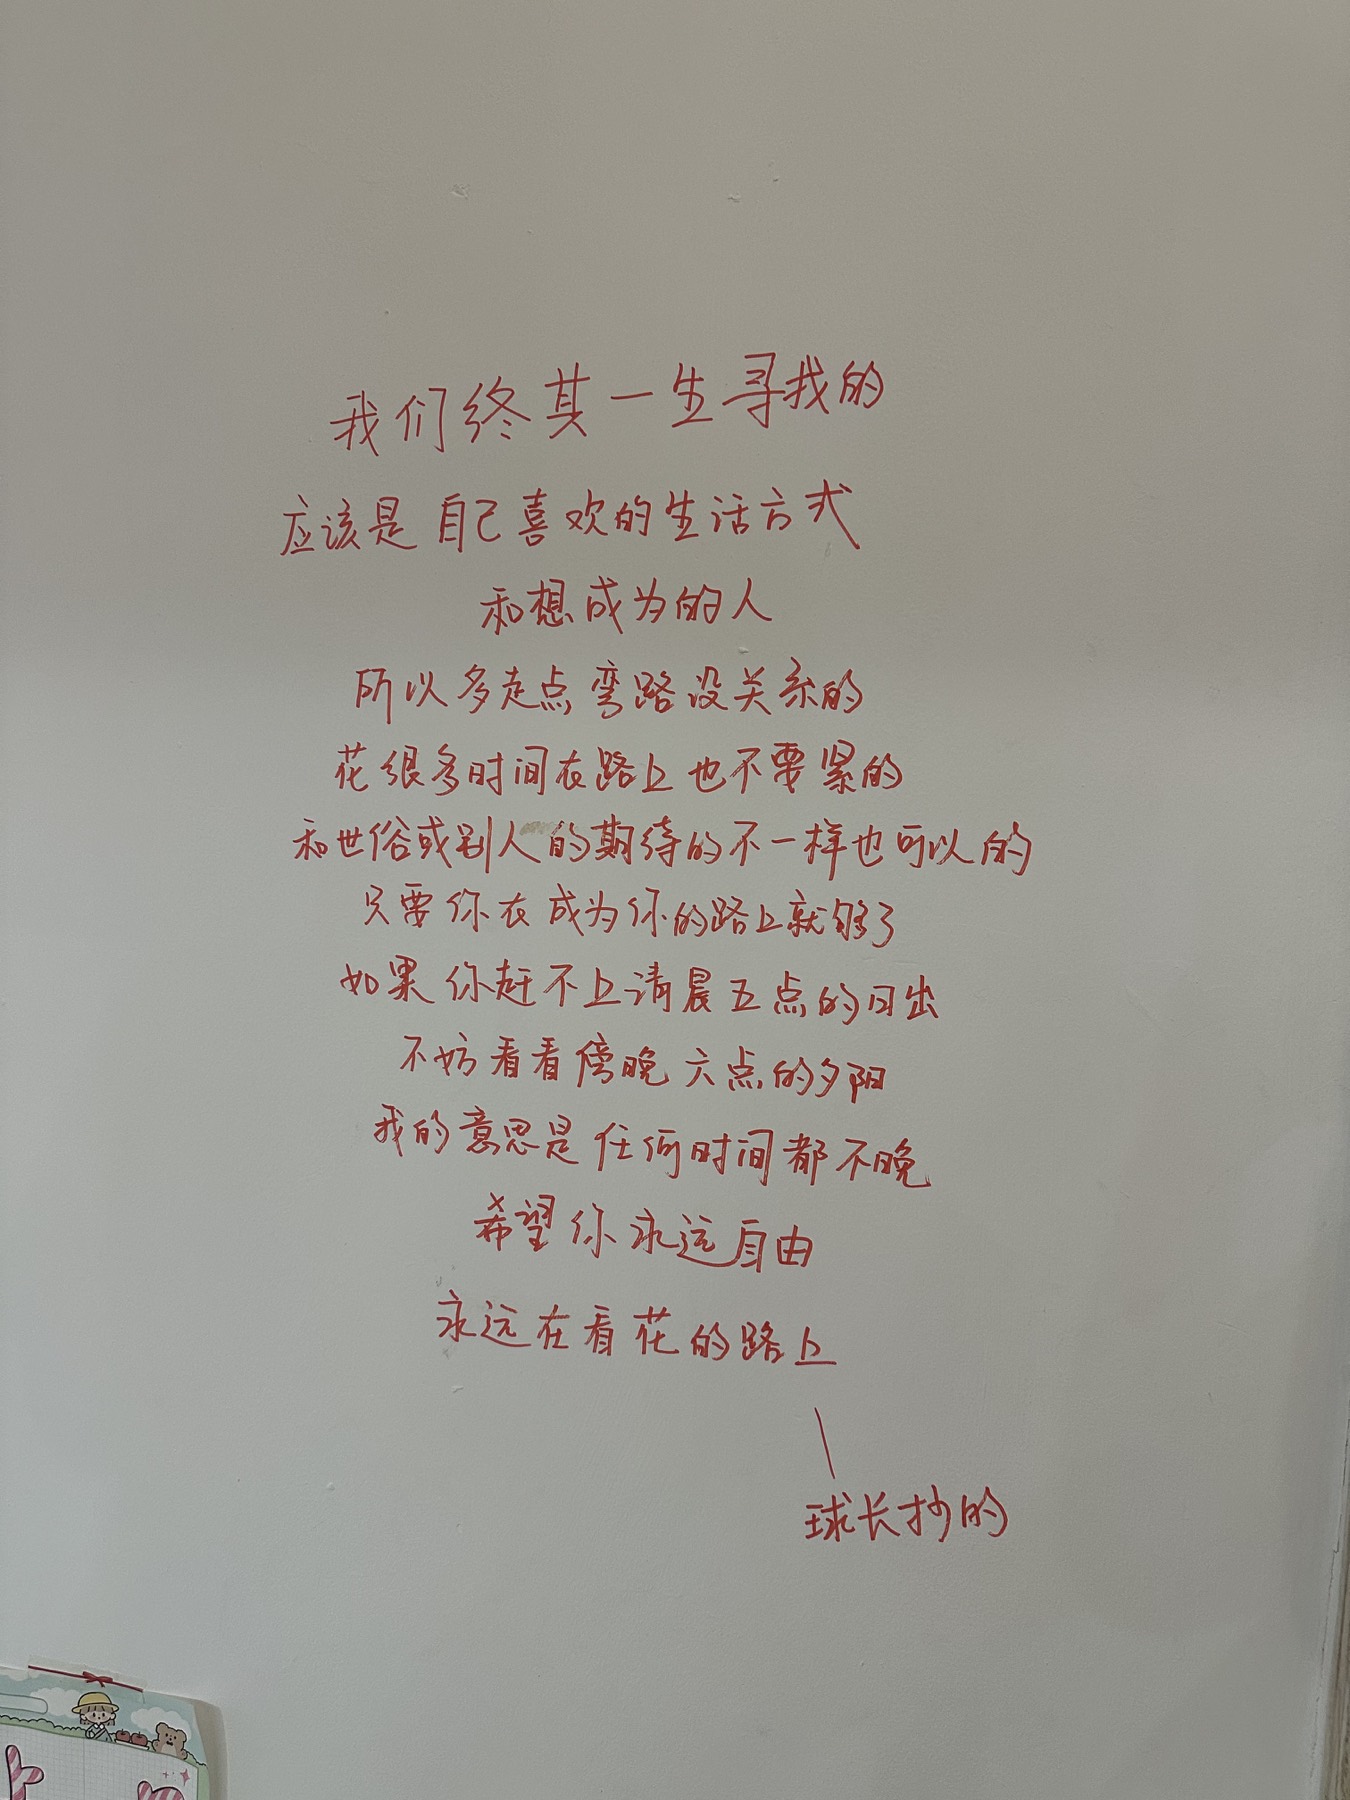 我们终其一生寻找的
应该是自己喜欢的生活方式
和想成为的人
所以多走点弯路没关系的
花很多时间在路上也不要紧的
和世俗或别人的期待的不一样也可以的
只要你在成为你的路上就够了
如果你赶不上清晨五点的日出
不妨看看傍晚六点的夕阳
我的意思是任何时间都不晚
希望你永远自由
永远在看花的路上
球长抄的